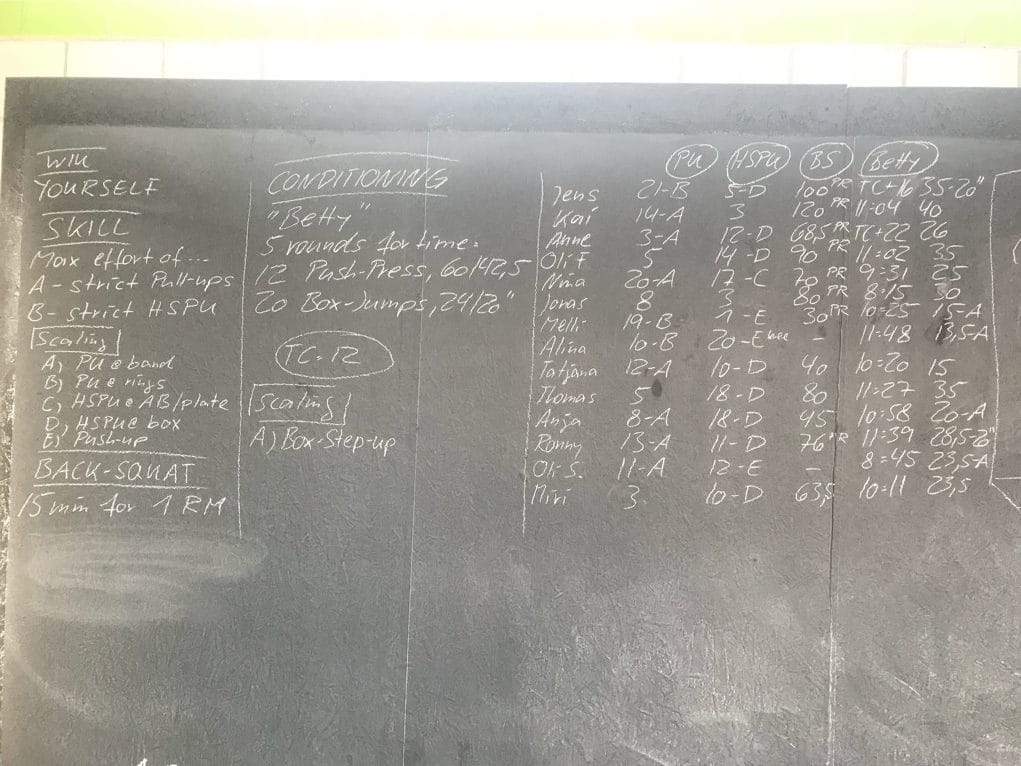 WIU
YOURSELF
SKILL
Max effort of...
A - strict Pull-ups
B - strict HSPU
Scaling
A) PU@band
B) PU@rings
C) HSPU@AB/plate
D) HSPU@box
E) Push-up
BACK-SQUAT
15min for 1 RM
CONDITIONING
"Betty"
5 rounds for time:
12 Push-Press, 60/42,5
20 Box-Jumps, 24/20"
TC: 12
Scaling
A) Box-Step-up
PU HSPU BS Betty
Jens 21-B 5-D 100 PR TC+16 35-20"
Kai 14-A 3 120 PR 11:04 40
Anne 3-A 12-D 68,5 PR TC+22 26
Oli F 5 14-D 90 PR 11:02 35
Nina 20-A 17-C 70 PR 9:31 25
Jonas 8 3 80 PR 8:15 30
Melli 19-B 1-E 30 PR 10:25 15-A
Alina 10-B 20-E - 11:48 13,5-A
Tatjana 12-A 10-D 40 10:20 15
Thomas 5 18-D 80 11:27 35
Anja 8-A 18-D 45 10:58 20-A
Ronny 13-A 11-D 76 PR 11:39 28,5-20"
Oli-S. 11-A 12-E - 8:45 23,5-A
Miri 3 10-D 63,5 10:11 23,5